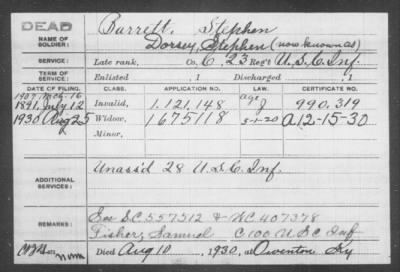 DEAD
NAME OF SOLDIER: Barrett, Stephen
Dorsey, Stephen (now known as)
SERVICE: Late rank, Co. C, 23 Reg't U.S.C. Inf.
TERM OF SERVICE: Enlisted , 1 Discharged , 1
DATE OF FILING. CLASS. APPLICATION NO. LAW. CERTIFICATE NO.
1907 Mch 16 age
1891, July 12 Invalid, 1.121,148 990.319
1930 Aug 25 Widow, 1675118 5-1-20 A12-15-30
Minor,
ADDITIONAL SERVICES: Unass'd 28 U.S.C. Inf.
REMARKS: See S.C. 557512 & W.C. 407378
Fisher, Samuel C 100 U.S.C. Inf
Died Aug 10, 1930, at Owenton Ky